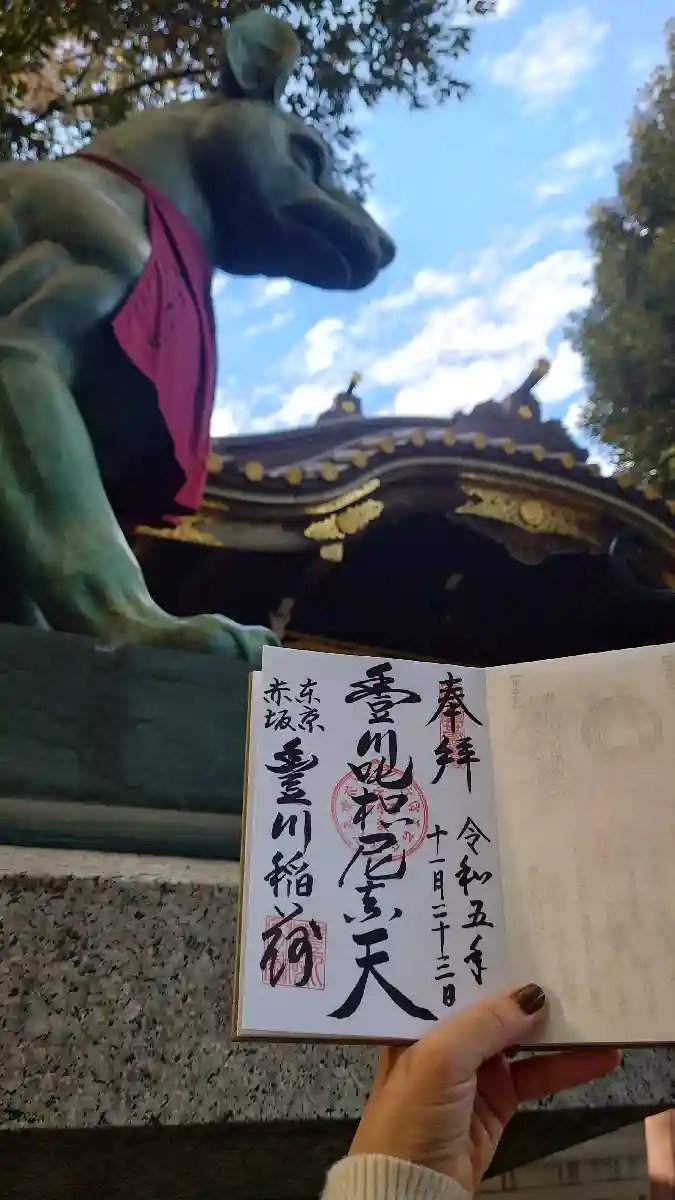 奉拝
令和五年
十一月二十三日
豊川吒枳尼真天
東京
赤坂
豊川稲荷